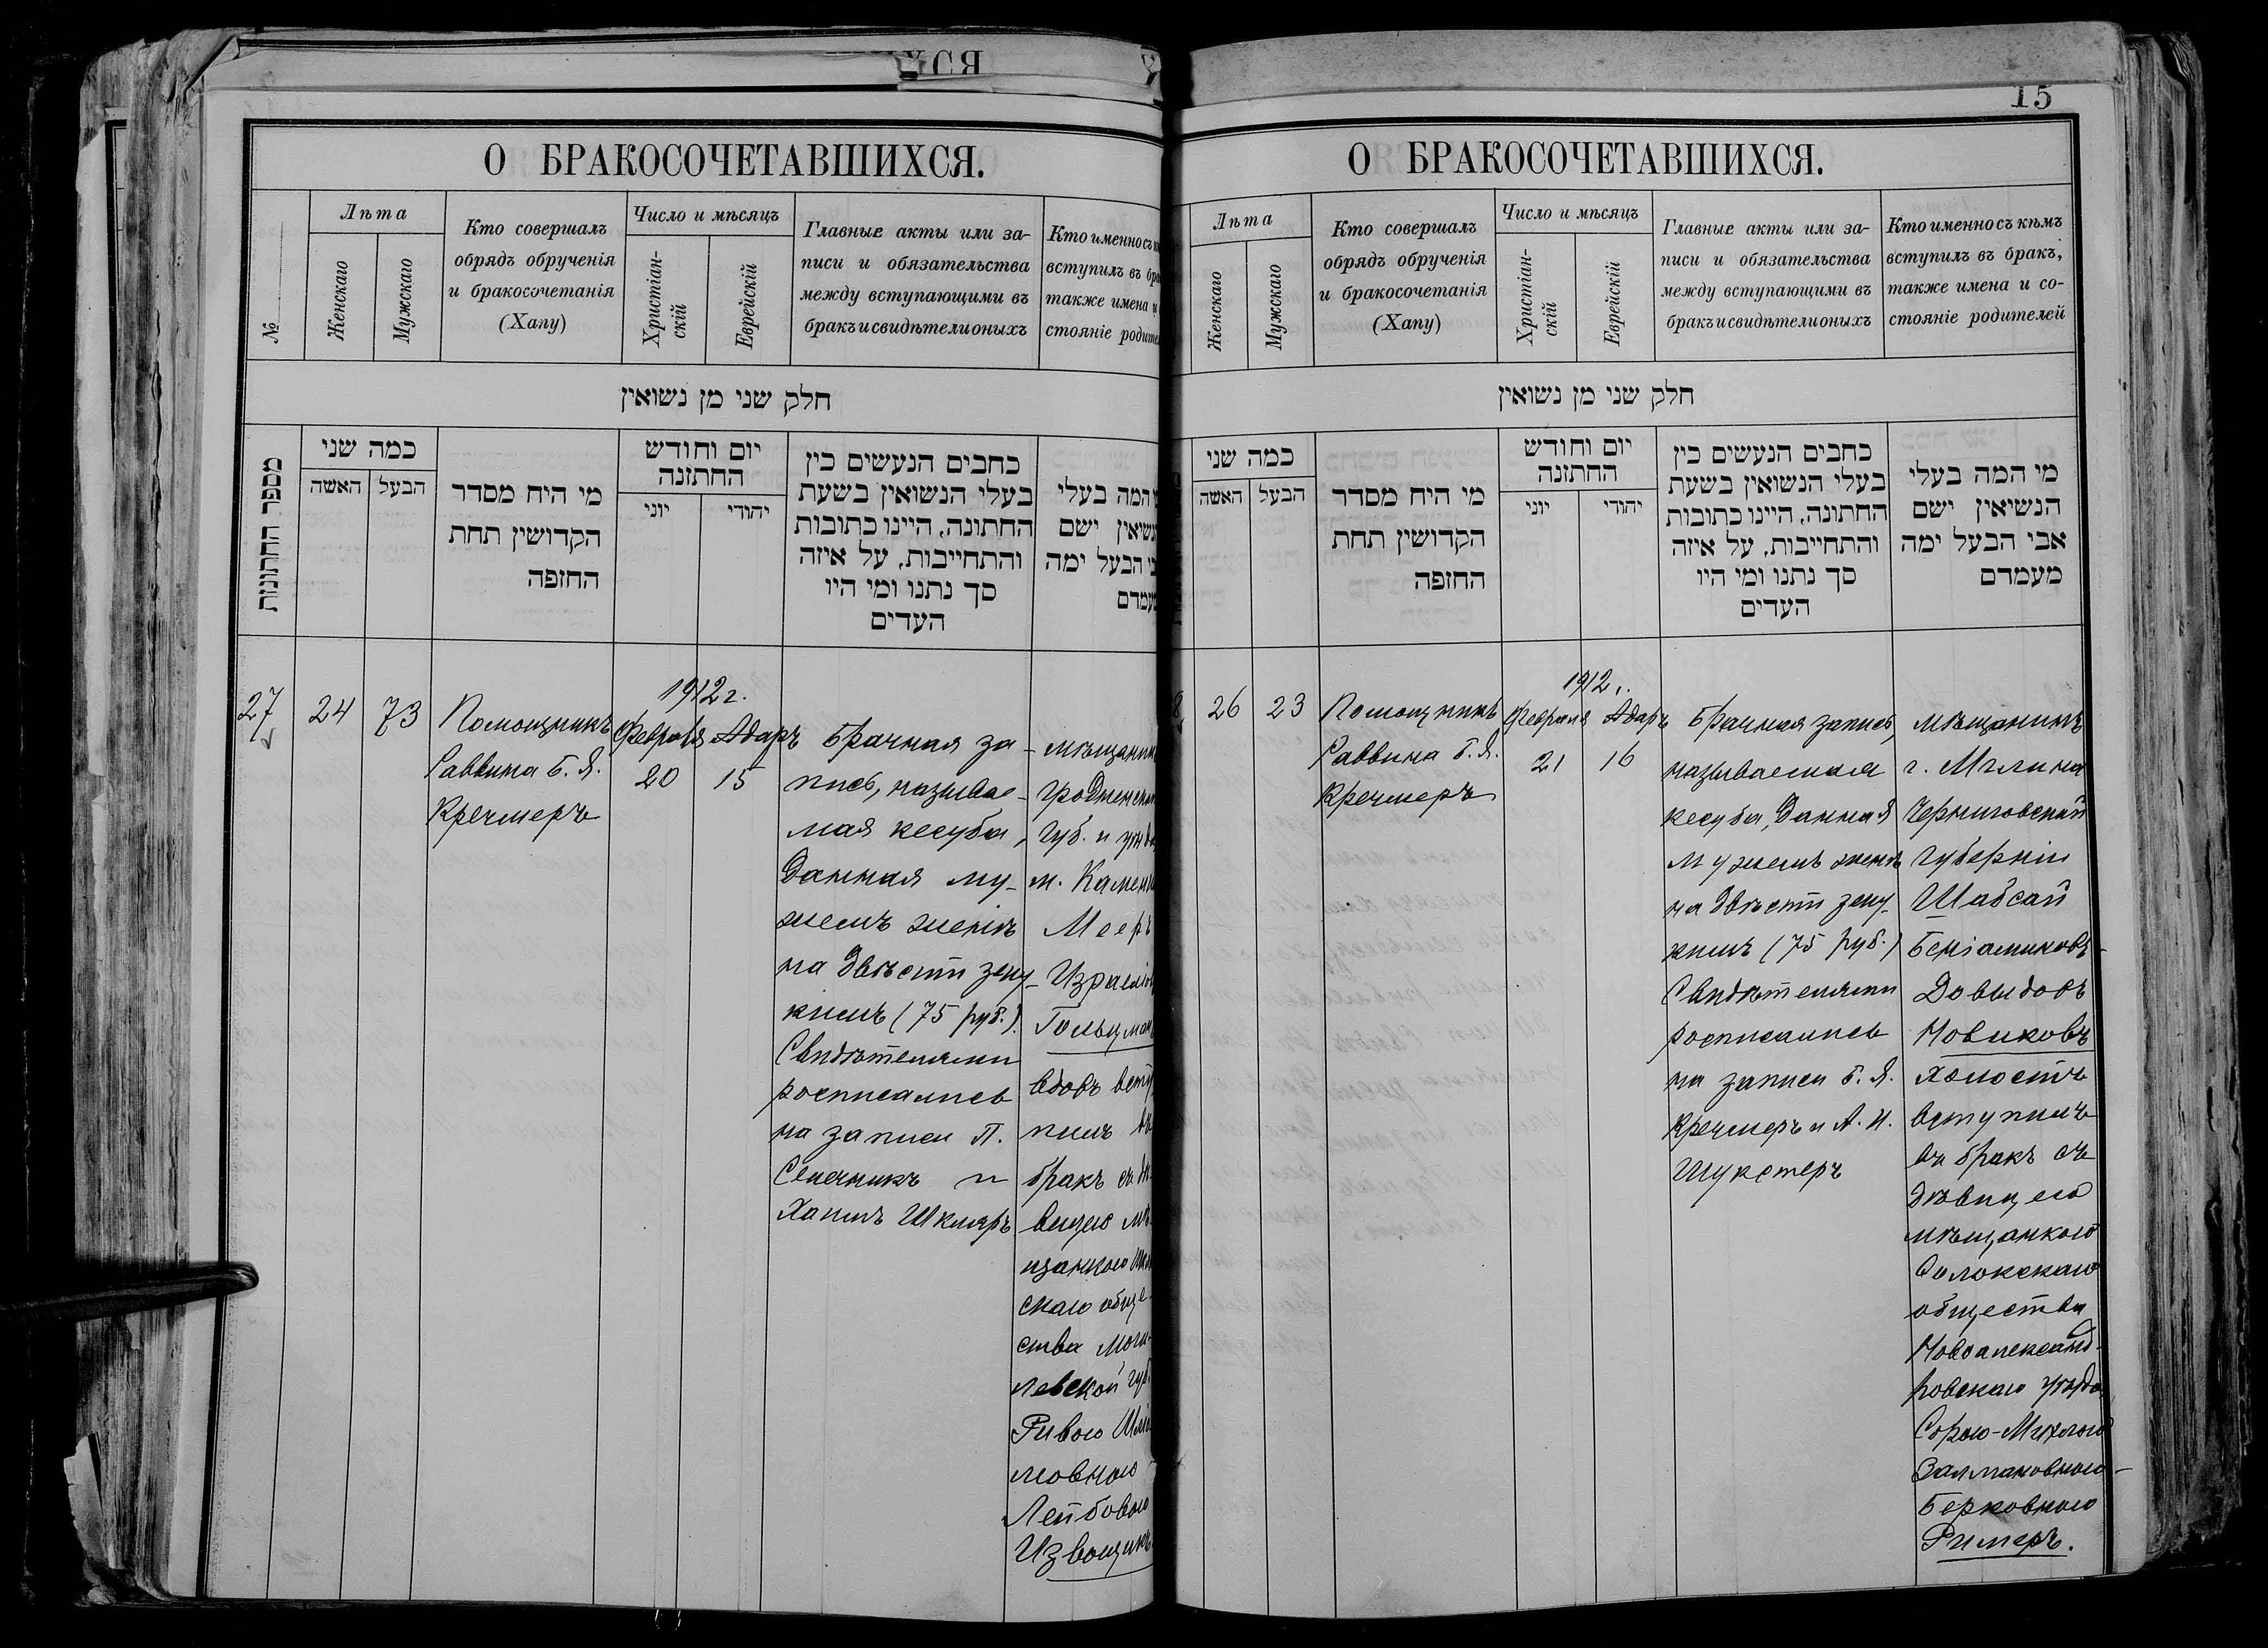 15
О БРАКОСОЧЕТАВШИХСЯ.
№
Лѣта
Женскаго
Мужскаго
Кто совершалъ
обрядъ обрученія
и бракосочетанія
(Хапу)
Число и мѣсяцъ
Христіан-
скій
Еврейскій
Главные акты или за-
писи и обязательства
между вступающими въ
бракъ и свидѣтели оныхъ
Кто именно съ
вступилъ въ
также имена
стояніе
חלק שני מן נשואין
מספר החתונות
כמה שני
האשה
הבעל
מי היח מסדר
הקדושין תחת
החזפה
יום וחודש
החתזנה
יוני
יהודי
כחבים הנעשים כין
בעלי הנשואין בשעת
החתונה, היינו כתובות
והתחייבות, על איזה
סך נתנו ומי היו
העדים
המה בעלי
ישם
הבעל ימה
27
24
73
Помощникъ
Раввина Б. Я.
Кречмеръ
1912 г.
Февраля Адаръ
20 15
Брачная за-
пись, называе-
мая кесуба,
данная му-
жемъ женѣ
на двѣсти зену-
кимъ (75 руб.).
Свидѣтелями
росписались
на записи П.
и
Хаимъ Шкляръ
мѣщанинъ
Гродненской
Губ. и уѣзда
м.
Мееръ
Гольцман
вдовъ всту-
пилъ въ
бракъ съ дѣ-
вицею мѣ-
щанкою
скаго обще-
ства Моги-
левской губ.
Ривою
мовною
Лейбовою
Извощикъ
О БРАКОСОЧЕТАВШИХСЯ.
Лѣта
Женскаго
Мужскаго
Кто совершалъ
обрядъ обрученія
и бракосочетанія
(Хапу)
Число и мѣсяцъ
Христіан-
скій
Еврейскій
Главные акты или за-
писи и обязательства
между вступающими въ
бракъ и свидѣтели оныхъ
Кто именно съ кѣмъ
вступилъ въ бракъ,
также имена и со-
стояніе родителей
חלק שני מן נשואין
כמה שני
האשה
הבעל
מי היח מסדר
הקדושין תחת
החזפה
יום וחודש
החתזנה
יוני
יהודי
כחבים הנעשים כין
בעלי הנשואין בשעת
החתונה, היינו כתובות
והתחייבות, על איזה
סך נתנו ומי היו
העדים
מי המה בעלי
הנשיאין ישם
אבי הבעל ימה
מעמדם
26
23
Помощникъ
Раввина Б. Я.
Кречмеръ
1912 г.
Февраля Адаръ
21 16
Брачная запись,
называемая
кесуба, данная
мужемъ женѣ
на двѣсти зену-
кимъ (75 руб.)
Свидѣтелями
росписались
на записи Б. Я.
Кречмеръ и А. И.
Шукстеръ
мѣщанинъ
г. Мглина
Черниговской
губерніи
Шабсай
Беніаминовъ-
Довыдовъ
Новиковъ
холостъ
вступилъ
въ бракъ съ
дѣвицею
мѣщанкою
Солокскаго
общества
Новоалександ-
ровскаго уѣзда
Сорою-Михлою
Залмановною-
Берковною
Римеръ.